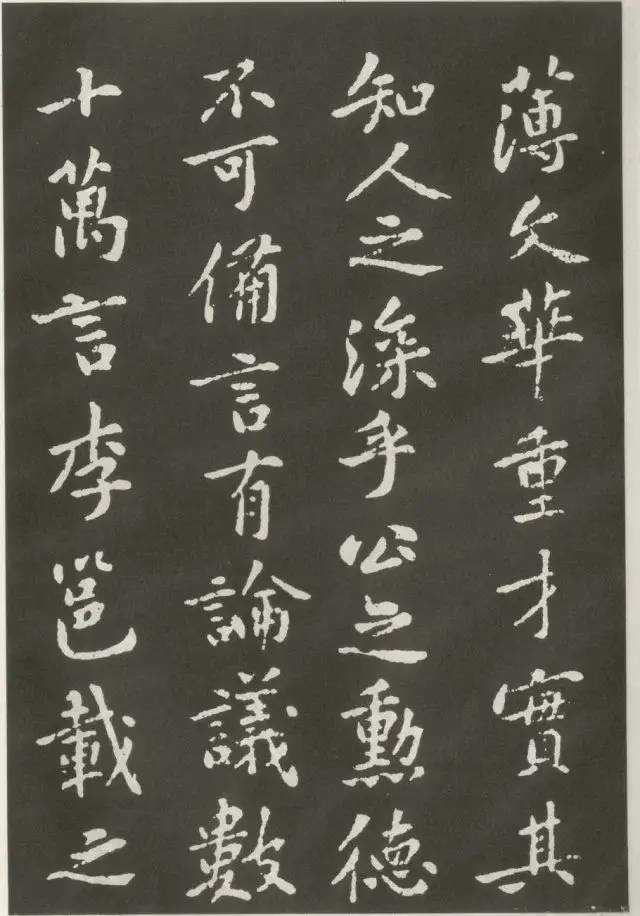 薄文華重才實其
知人之深乎公之勲德
不可備言有論議數
十萬言李邕載之